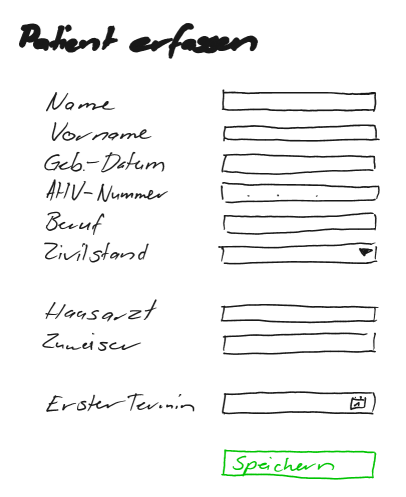 Patient erfassen
Name
Vorname
Geb.-Datum
AHV-Nummer
Beruf
Zivilstand
Hausarzt
Zuweiser
Erster Termin
Speichern